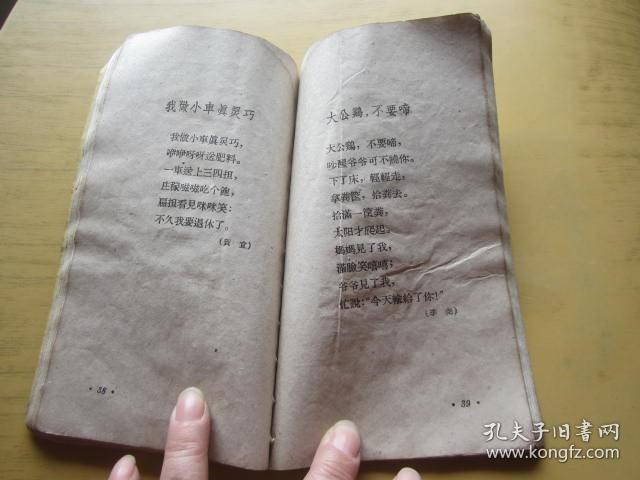 我做小車眞灵巧
我做小車眞灵巧,
咿咿呀呀送肥料。
一車送上三四担,
庄稼滋滋吃个飽,
扁担看見咪咪笑:
不久我要退休了。
38
大公鷄,不要啼
大公鷄,不要啼,
吵醒爷爷可不饒你。
下了床,輕輕走,
拿粪筐,拾粪去。
拾滿一筐粪,
太阳才爬起。
媽媽見了我,
滿臉笑嘻嘻;
爷爷見了我,
忙說:“今天輸給了你!”
39
孔夫子旧书网
www.kongfz.com